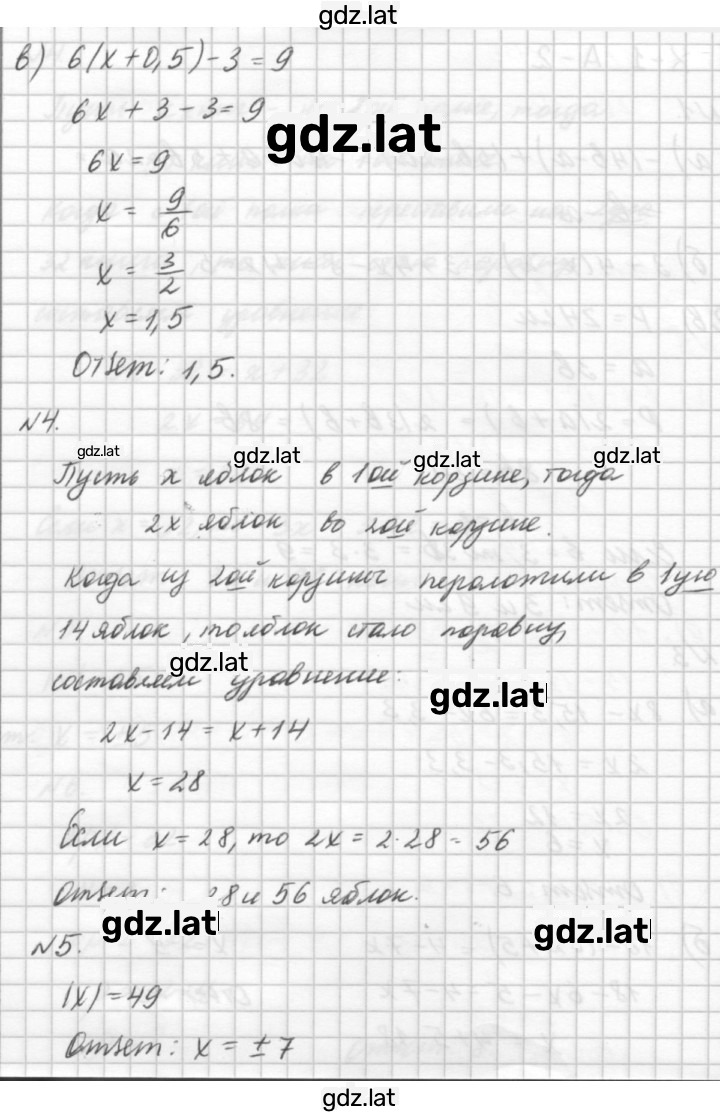 gdz.lat
в) 6(x+0,5)-3=9
6x+3-3=9
gdz.lat
6x=9
x = 9/6
x = 3/2
x=1,5
Ответ: 1,5.
№4.
gdz.lat gdz.lat gdz.lat gdz.lat
Пусть x яблок в 1ой корзине, тогда
2x яблок во 2ой корзине.
Когда из 2ой корзины пероложили в 1ую
14 яблок, то яблок стало поровну,
gdz.lat
составляем уравнение:
gdz.lat
2x-14 = x+14
x=28
Если x=28, то 2x = 2·28 = 56
Ответ: 28 и 56 яблок.
gdz.lat gdz.lat
№5.
|x|=49
Ответ: x = ±7
gdz.lat